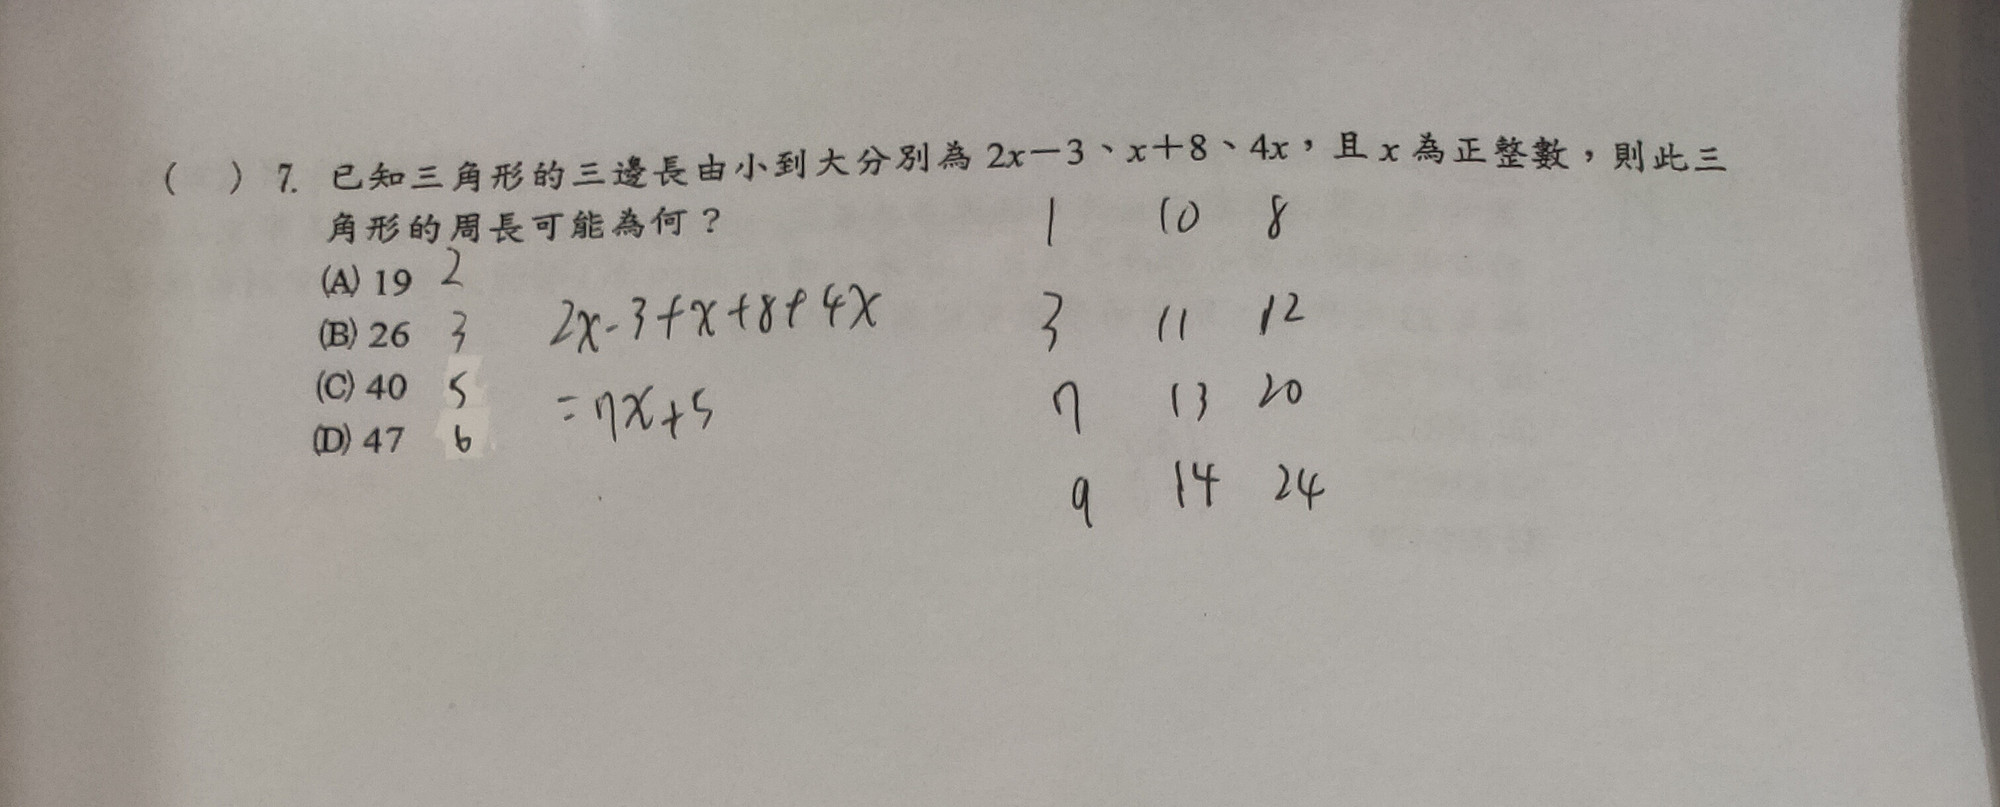 (　) 7. 已知三角形的三邊長由小到大分別為 2x－3、x＋8、4x，且 x 為正整數，則此三
角形的周長可能為何？
1 10 8
(A) 19 2
(B) 26 3
2x-3+x+8+4x
3 11 12
(C) 40 5
=7x+5
7 13 20
(D) 47 6
9 14 24